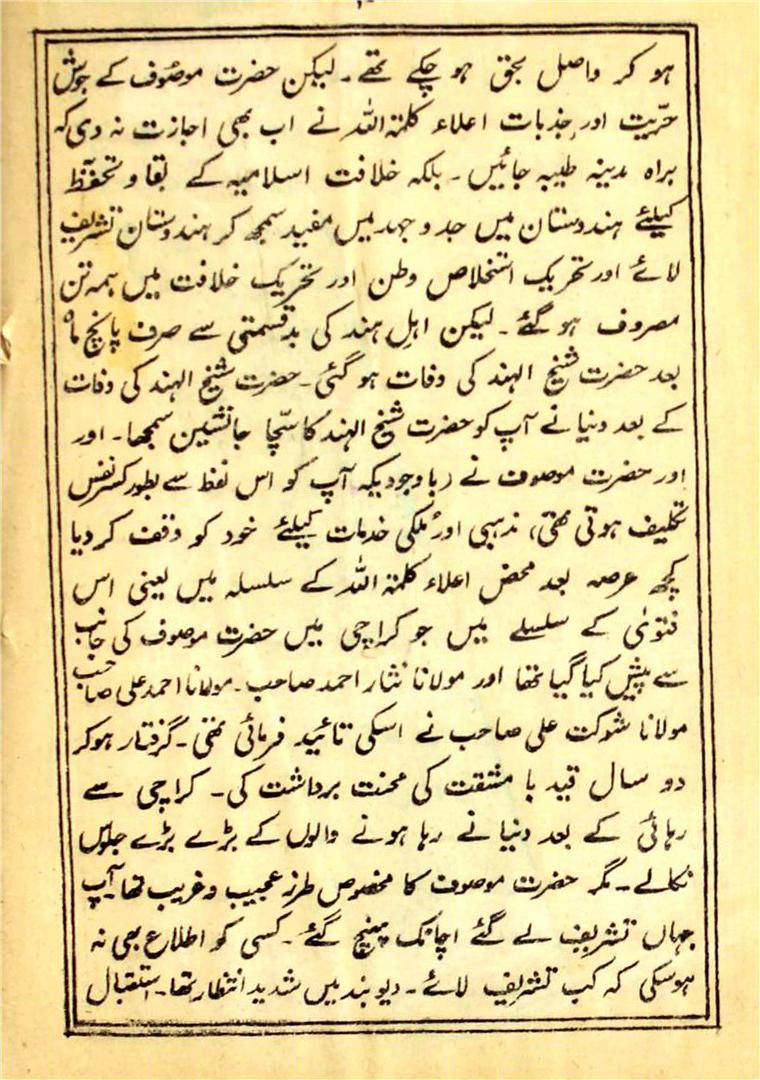 ہو کر واصل بحق ہو چکے تھے۔ لیکن حضرت موصوف کے جوش
حرّیت اور جذبات اعلاء کلمۃ اللہ نے اب بھی اجازت نہ دی کہ
براہ مدینہ طیبہ جائیں۔ بلکہ خلافت اسلامیہ کے بقا و تحفّظ
کیلئے ہندوستان میں جد و جہد میں مفید سمجھ کر ہندوستان تشریف
لائے اور تحریک استخلاص وطن اور تحریک خلافت میں ہمہ تن
مصروف ہو گئے۔ لیکن اہلِ ہند کی بدقسمتی سے صرف پانچ ماہ
بعد حضرت شیخ الہند کی وفات ہو گئی۔ حضرت شیخ الہند کی وفات
کے بعد دنیا نے آپ کو حضرت شیخ الہند کا سچّا جانشین سمجھا۔ اور
اور حضرت موصوف نے (باوجودیکہ آپ کو اس لفظ سے بطور کسرنفس
تکلیف ہوتی تھی، مذہبی اور ملکی خدمات کیلئے خود کو وقف کر دیا
کچھ عرصہ بعد محض اعلاء کلمۃ اللہ کے سلسلہ میں یعنی اس
فتویٰ کے سلسلے میں جو کراچی میں حضرت موصوف کی جانب
سے پیش کیا گیا تھا اور مولانا نثار احمد صاحب۔ مولانا احمد علی صاحب
مولانا شوکت علی صاحب نے اسکی تائید فرمائی تھی۔ گرفتار ہوکر
دو سال قید با مشقت کی محنت برداشت کی۔ کراچی سے
رہائی کے بعد دنیا نے رہا ہونے والوں کے بڑے بڑے جلوس
نکالے۔ مگر حضرت موصوف کا مخصوص طرز عجیب و غریب تھا۔ آپ
جہاں تشریف لے گئے اچانک پہنچ گئے۔ کسی کو اطلاع بھی نہ
ہوسکی کہ کب تشریف لائے۔ دیوبند میں شدید انتظار تھا۔ استقبال